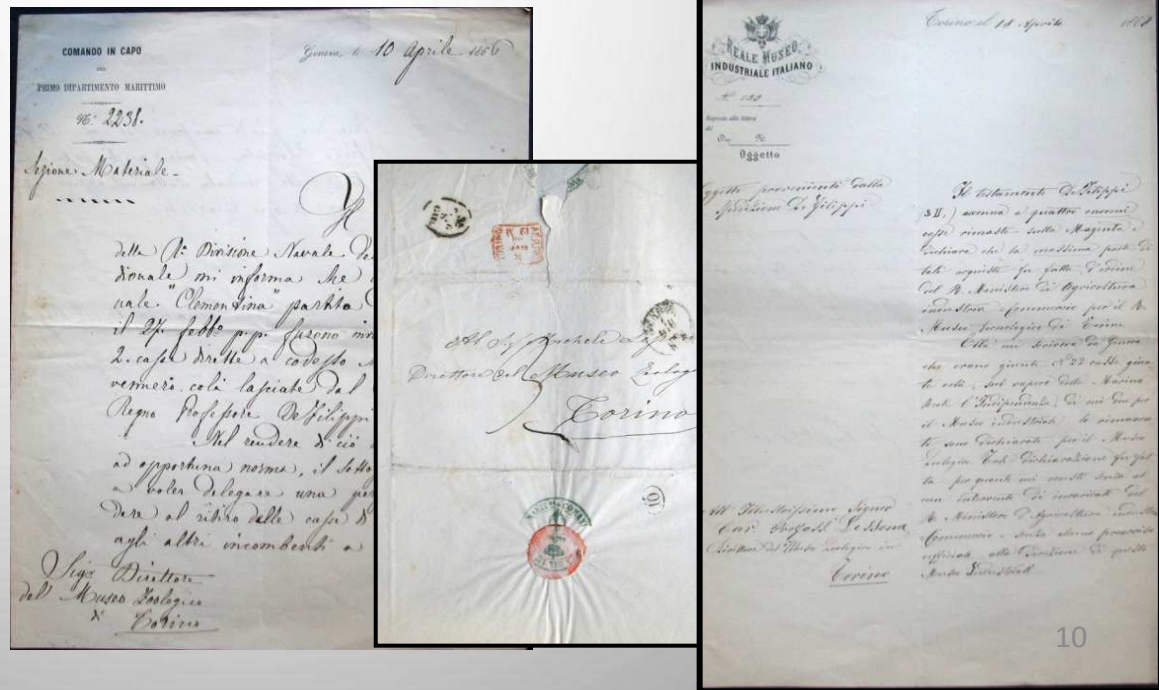 COMANDO IN CAPO
DEL
PRIMO DIPARTIMENTO MARITTIMO
N.º 2238.
Genova, li 10 Aprile 1866
Sezione Materiale
Il
della Divisione Navale
dionale mi informa che
nale "Clementina" partito
il 27 febb.º p.p. furono
2. casse dirette a codesto
vennero colà lasciate dal
Regno Professore De Filippi
Nel rendere di ciò
ad opportuna norma, il sotto
a voler delegare una per
dere al ritiro delle casse
agli altri incombenti
Sig. Direttore
del Museo Zoologico
di
Torino
Al Sig. Michele
Direttore del Museo Zoolog
Torino
REALE MUSEO
INDUSTRIALE ITALIANO
Torino, il Aprile 1868
N.
Risposta alla lettera
del
Div. N.
Oggetto
Oggetti provenienti dalla
spedizione De Filippi
Il testamento De Filippi
§ II.) accenna a quattro enormi
casse rimaste sulla Magenta e
dichiara che la massima parte di
tali acquisti fu fatta d'ordine
del R. Ministero di Agricoltura
industria Commercio per il R.
Museo Tecnologico di Torino.
che erano giunte N. 22 casse
sul vapore della Marina
l'Indipendenza, di cui due per
il Museo industriale le rimanen
ti sono dichiarate per il Museo
Zoologico. Tale dichiarazione fu fat
ta per quanto mi consta senza al
cun intervento di incaricati del
R. Ministero d'Agricoltura industria
Commercio e senza alcun preavviso
ufficiale alla Direzione di questo
Museo Industriale
All' Illustrissimo Signor
Cav. Profess. Lessona
Direttore del Museo Zoologico in
Torino
10